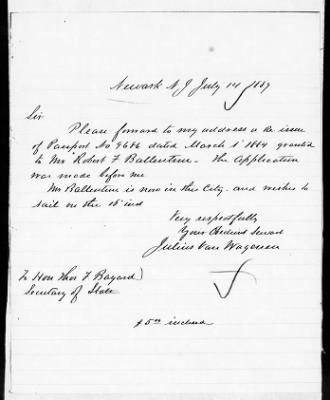 Newark N J July 14 / 1887
Sir
Please forward to my address a re issue
of Passport No 9686 dated March 1st 1884 granted
to Mr Robert F Ballentine - the application
was made before me
Mr Ballentine is now in this City and wishes to
sail on the inst
Very respectfully
Your Obedient Servant
Julius Van Wagenen
To Hon Thos F Bayard
Secretary of State
$5.00 inclosed